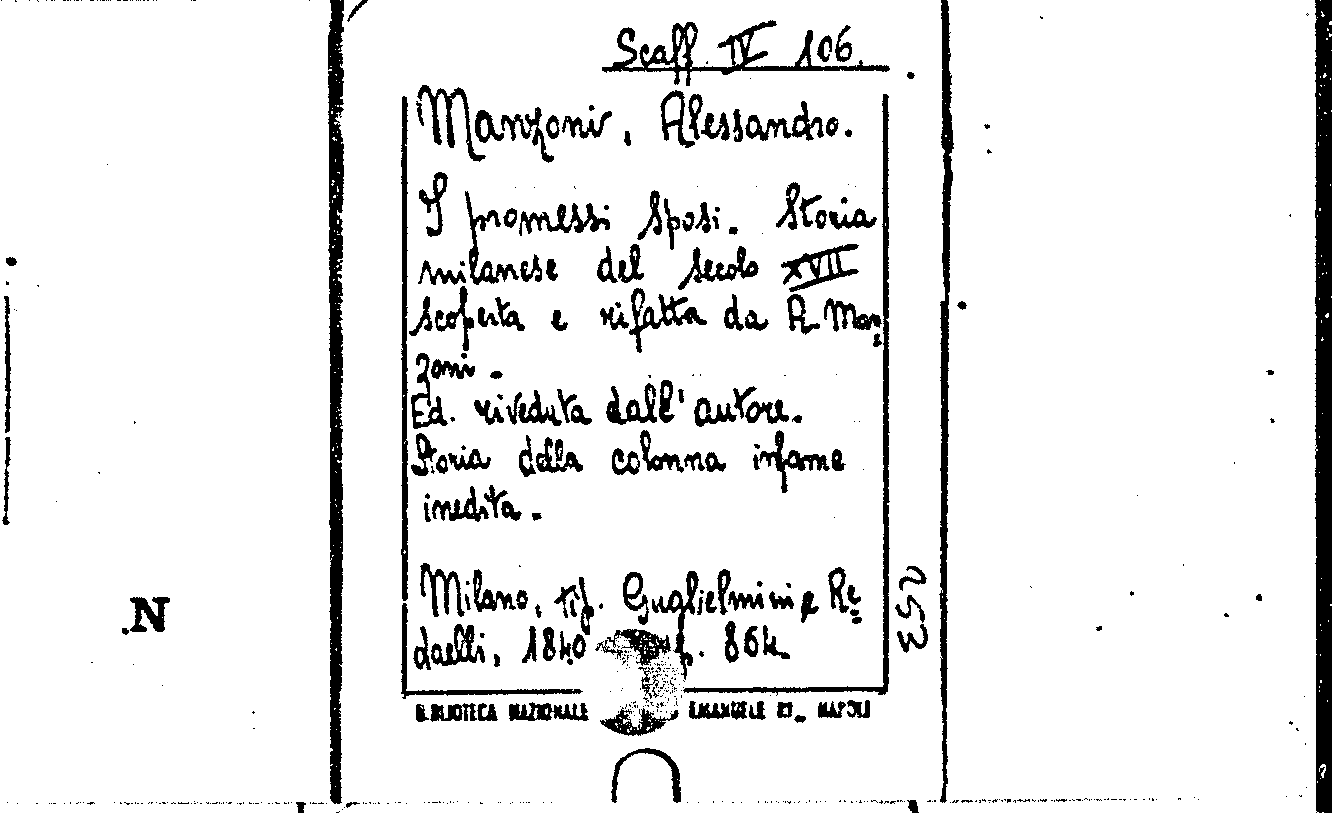 Scaff. IV 106.
Manzoni, Alessandro.
I promessi sposi. Storia
milanese del secolo XVII
scoperta e rifatta da A. Man=
zoni.
Ed. riveduta dall'autore.
Storia della colonna infame
inedita.
Milano, tip. Guglielmini e Re=
daelli, 1840 p. 864.
BIBLIOTECA NAZIONALE EMANUELE III NAPOLI
.N